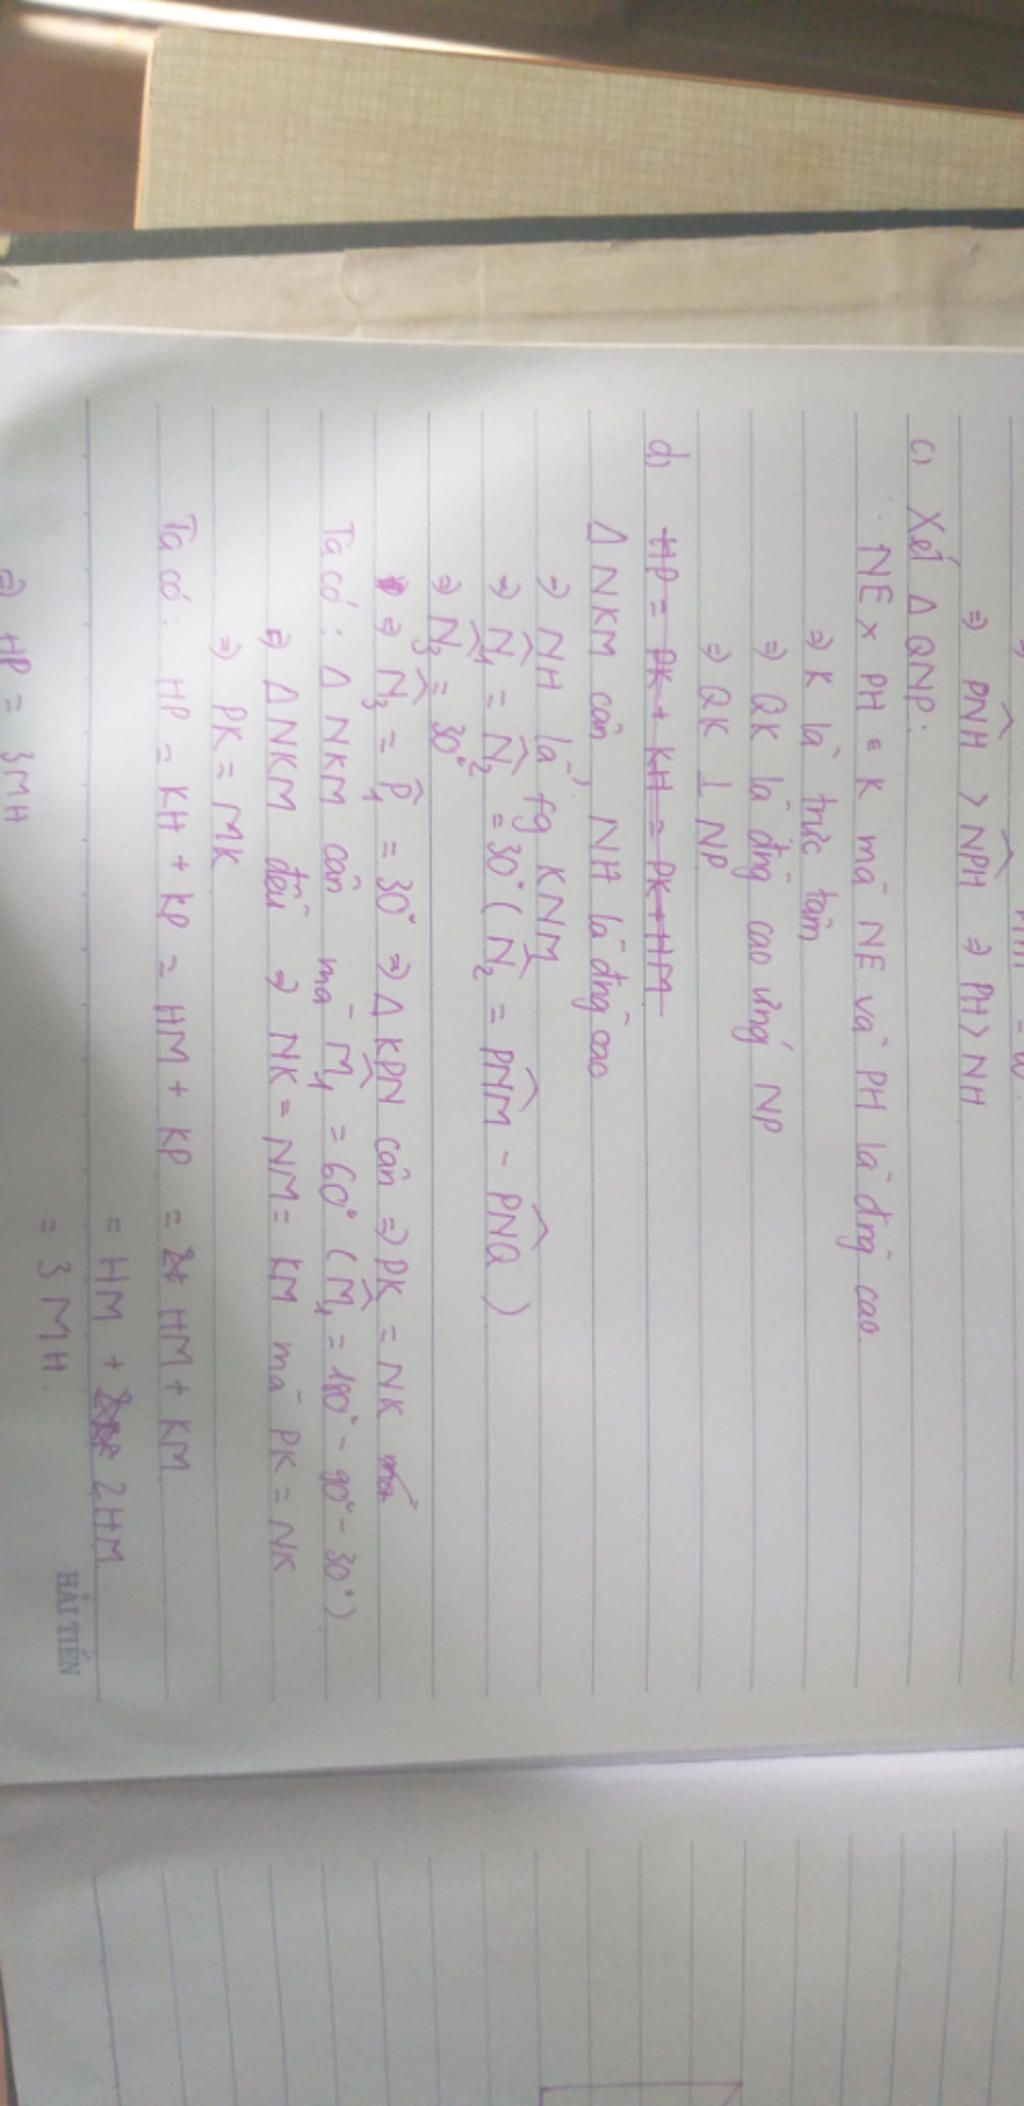 ⇒ PNH > NPH ⇒ PH > NH
c) Xét Δ QNP:
NE x PH = K mà NE và PH là đng cao
⇒ K là trực tâm
⇒ QK là đng cao ứng NP
⇒ QK ⊥ NP
d) HP = PK + KH = PK + HM
Δ NKM cân, NH là đng cao
⇒ NH là fg KNM
⇒ N̂1 = N̂2 = 30° (N̂2 = PNM - PNQ)
⇒ N̂3 = 30°
⇒ N̂3 = P̂1 = 30° ⇒ Δ KPN cân ⇒ PK = NK mà
Ta có: Δ NKM cân mà M̂1 = 60° (M̂1 = 180° - 90° - 30°)
⇒ Δ NKM đều ⇒ NK = NM = KM mà PK = NK
⇒ PK = MK
Ta có: HP = KH + KP = HM + KP = HM + KM
= HM + 2HM
= 3 MH.
⇒ HP = 3MH
HẢI TIẾN